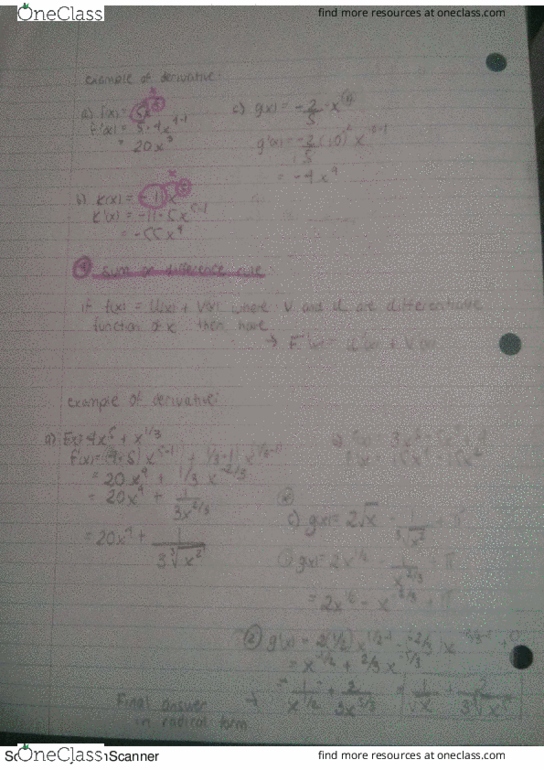 OneClass
find more resources at oneclass.com
example of derivative:
a) f(x) = 5x⁴
f'(x) = 5·4x⁴⁻¹
= 20x³
c) g(x) = -2/5 · x
g'(x) = -2/5 (10)
= -4x⁹
b) k(x) = -11x⁵
k'(x) = -11·5x⁵⁻¹
= -55x⁴
④ sum or difference rule
if f(x) = U(x) + V(x) where V and U are differentiable
function of x then have
→ F'(x) = U'(x) + V'(x)
example of derivative:
a) F(x) = 4x⁵ + x^1/3
= 20x⁴ + 1/3 x^-2/3
= 20x⁴ + 1/3x^2/3
= 20x⁴ + 1/3∛x²
c) g(x) = 2√x - 1/∛x² + π
① g(x) = 2x^1/2 - 1/x^2/3 + π
= 2x^1/2 - x^-2/3 + π
= x^-1/2 + 2/3 x^-5/3
= 1/x^1/2 + 2/3x^5/3 = 1/√x + 2/3∛x⁵
Final answer
in radical form
OneClass
Scanner
find more resources at oneclass.com